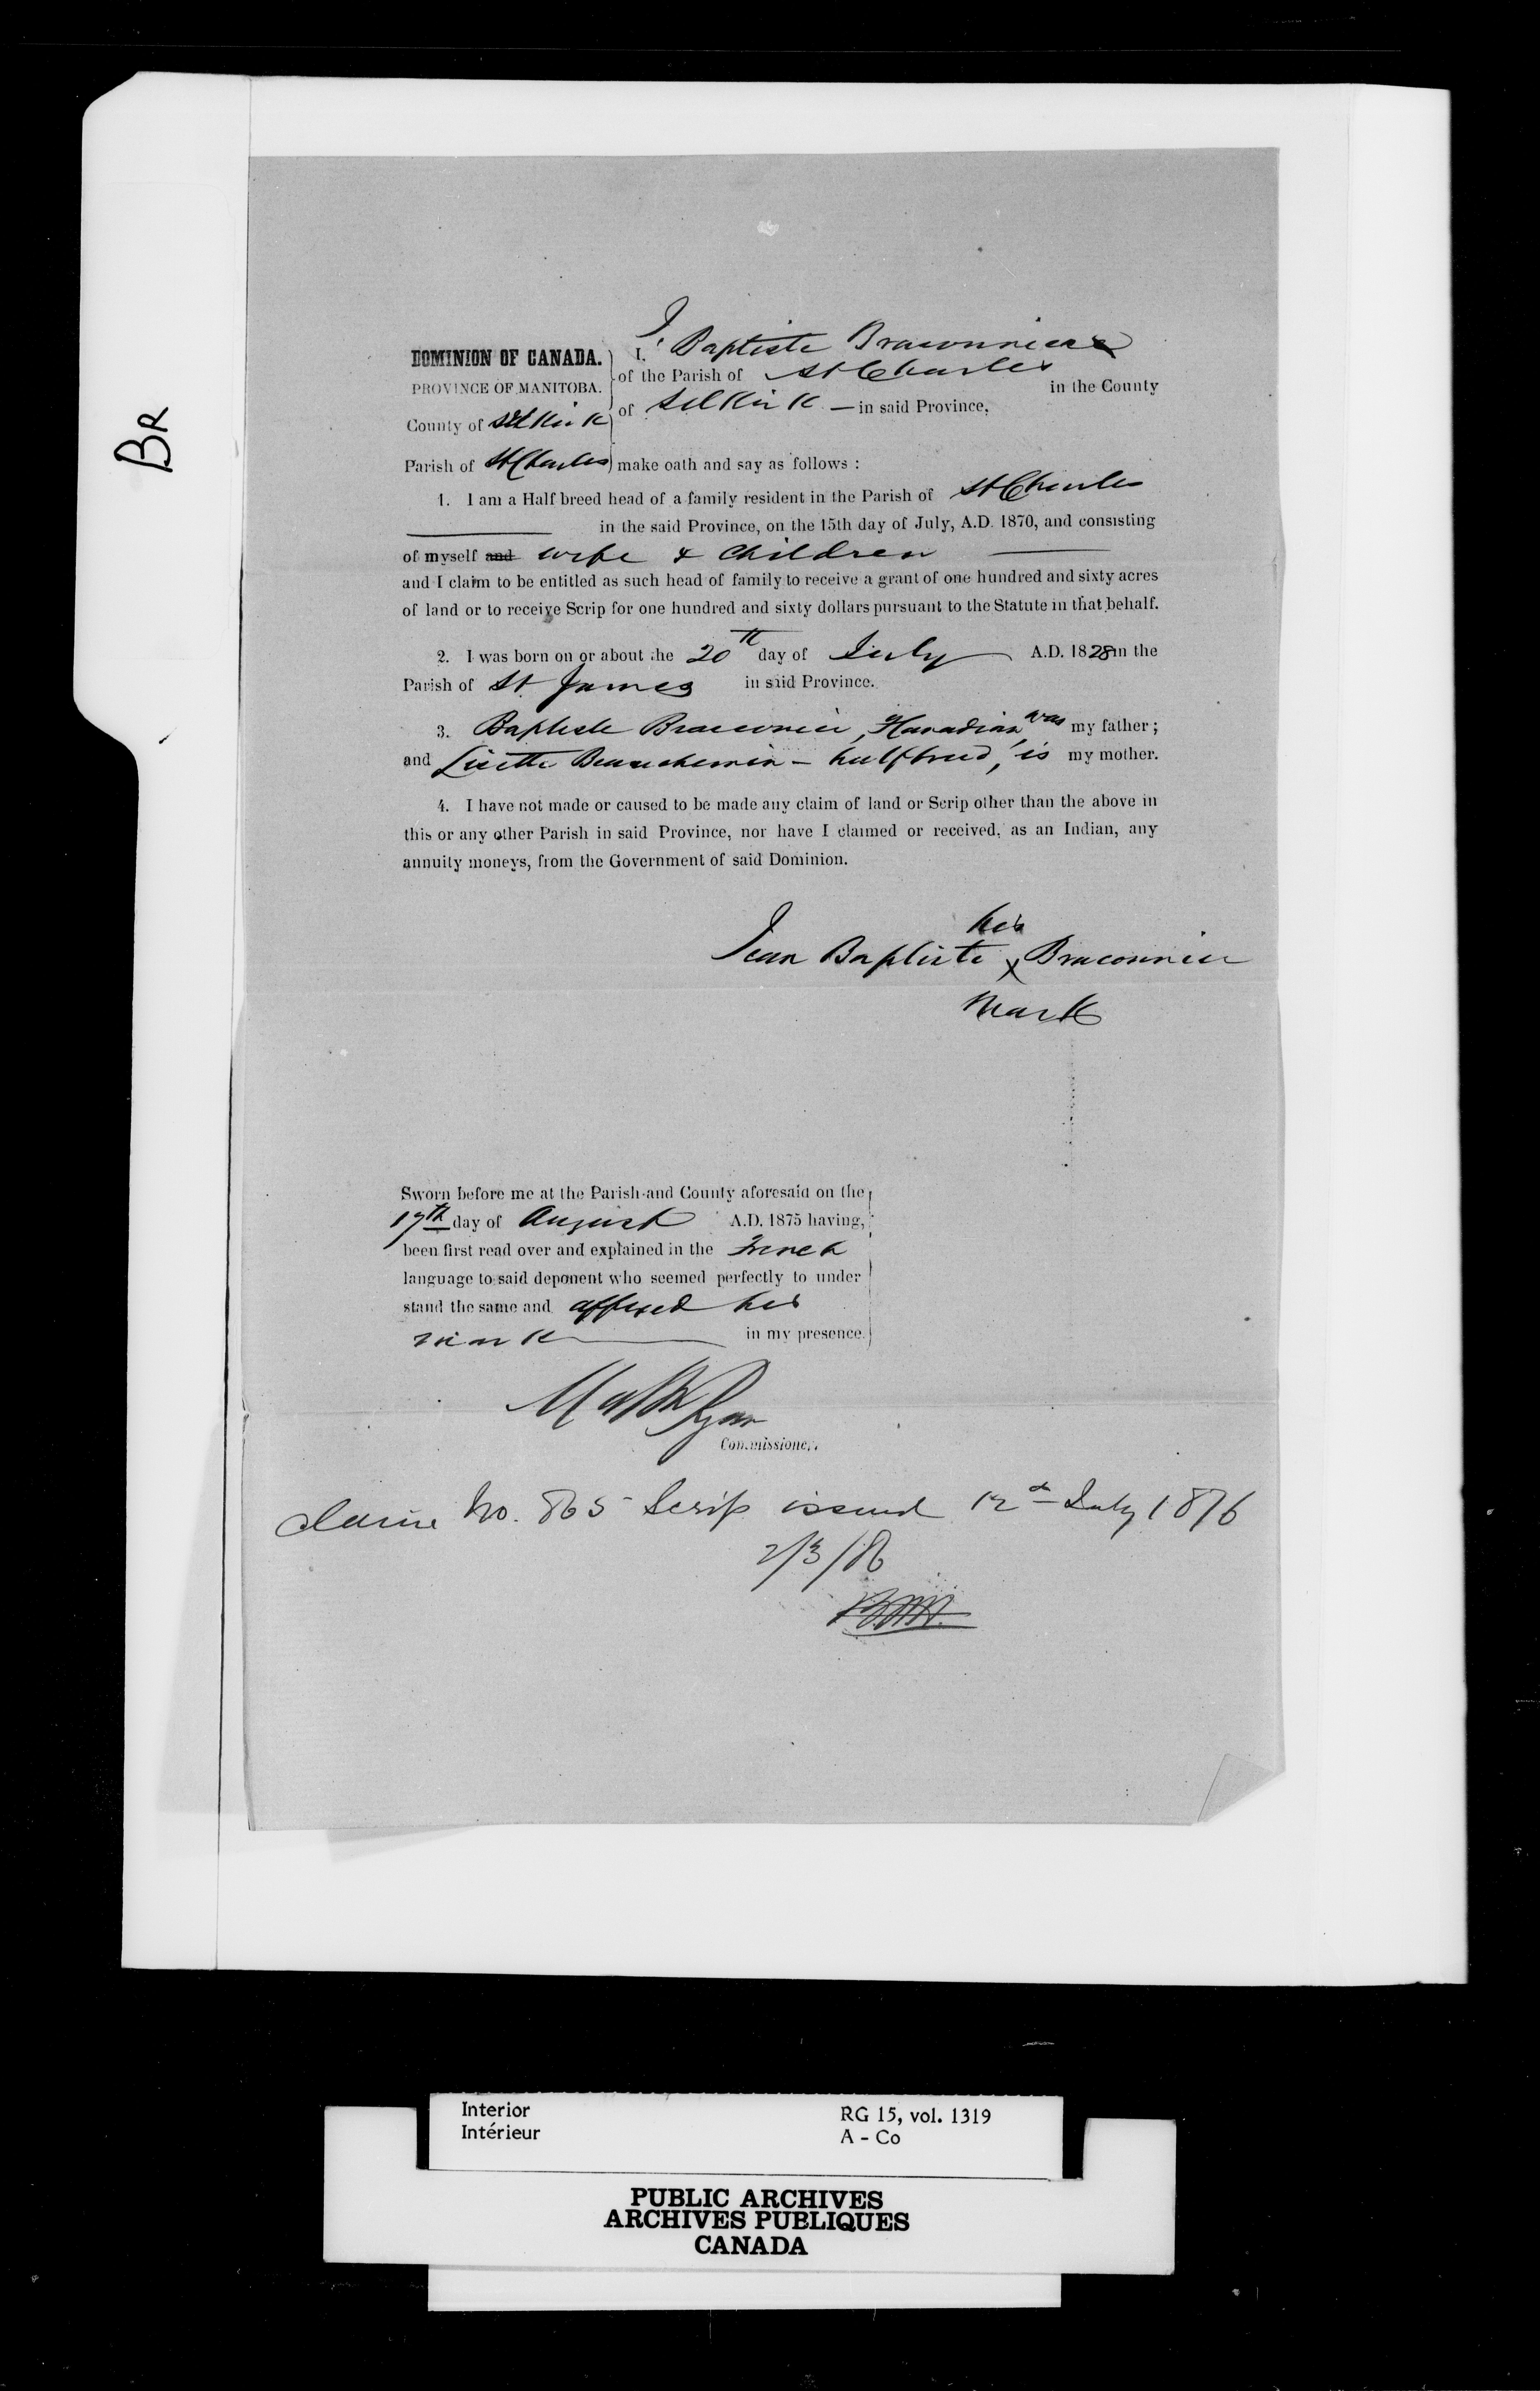 BR
DOMINION OF CANADA.
PROVINCE OF MANITOBA.
County of Selkirk
Parish of St Charles
I, J. Baptiste Braconnier
of the Parish of St Charles
in the County
of Selkirk — in said Province,
make oath and say as follows :
1. I am a Half breed head of a family resident in the Parish of St Charles
in the said Province, on the 15th day of July, A.D. 1870, and consisting
of myself and wife & Children
and I claim to be entitled as such head of family to receive a grant of one hundred and sixty acres
of land or to receive Scrip for one hundred and sixty dollars pursuant to the Statute in that behalf.
2. I was born on or about the 20th day of July A.D. 1828 in the
Parish of St. James in said Province.
3. Baptiste Braconnier, a Canadian, was my father ;
and Lisette Beauchemin - halfbreed, is my mother.
4. I have not made or caused to be made any claim of land or Scrip other than the above in
this or any other Parish in said Province, nor have I claimed or received, as an Indian, any
annuity moneys, from the Government of said Dominion.
his
Jean Baptiste x Braconnier
mark
Sworn before me at the Parish and County aforesaid on the
17th day of August A.D. 1875 having,
been first read over and explained in the French
language to said deponent who seemed perfectly to under
stand the same and affixed his
mark in my presence.
Matt Ryan
Commissioner.
Claim No. 865 Scrip issued 12th July 1876
2/3/86
Interior
Intérieur
RG 15, vol. 1319
A - Co
PUBLIC ARCHIVES
ARCHIVES PUBLIQUES
CANADA